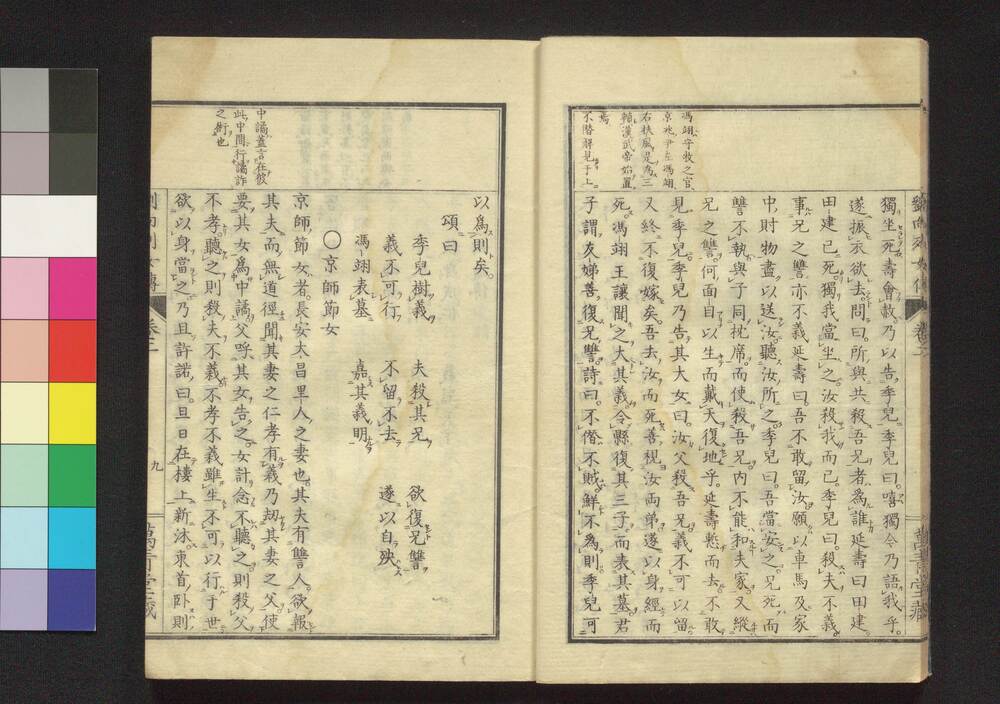 獨坐死壽會赦乃以告季兒季兒曰嘻獨今乃語我乎
遂振衣欲去問曰所與共殺吾兄者為誰延壽曰田建
田建已死獨我當坐之汝殺我而已季兒曰殺夫不義
事兄之讐亦不義延壽曰吾不敢留汝願以車馬及家
中財物盡以送汝聽汝所之季兒曰吾當安之兄死而
讐不執與子同枕席而使殺吾兄內不能和夫家又縱
兄之讐何面目以生而戴天復地乎延壽慙而去不敢
見季兒季兒乃告其大女曰汝父殺吾兄義不可以留
又終不復嫁矣吾去汝而死善視汝兩弟遂以身經而
死馮翊王讓聞之大其義令縣復其三子而表其墓君
子謂友娣善復兄讐詩曰不僭不賊鮮不為則季兒可
馮翊守牧之官
京兆尹左馮翊
右扶風是為三
輔漢武帝始置
焉
不僭詳見于上
以為則矣
頌曰
季兒樹義 夫殺其兄 欲復兄讐
義不可行 不留不去 遂以自殃
馮翊表墓 嘉其義明
〇京師節女
京師節女者長安大昌里人之妻也其夫有讐人欲報
其夫而無道徑聞其妻之仁孝有義乃刼其妻之父使
要其女為中譎父呼其女告之女計念不聽之則殺父
不孝聽之則殺夫不義不孝不義雖生不可以行于世
欲以身當之乃且許諾曰旦日在樓上新沐東首臥則
中譎蓋言在彼
此中間行譎詐
之術也
九